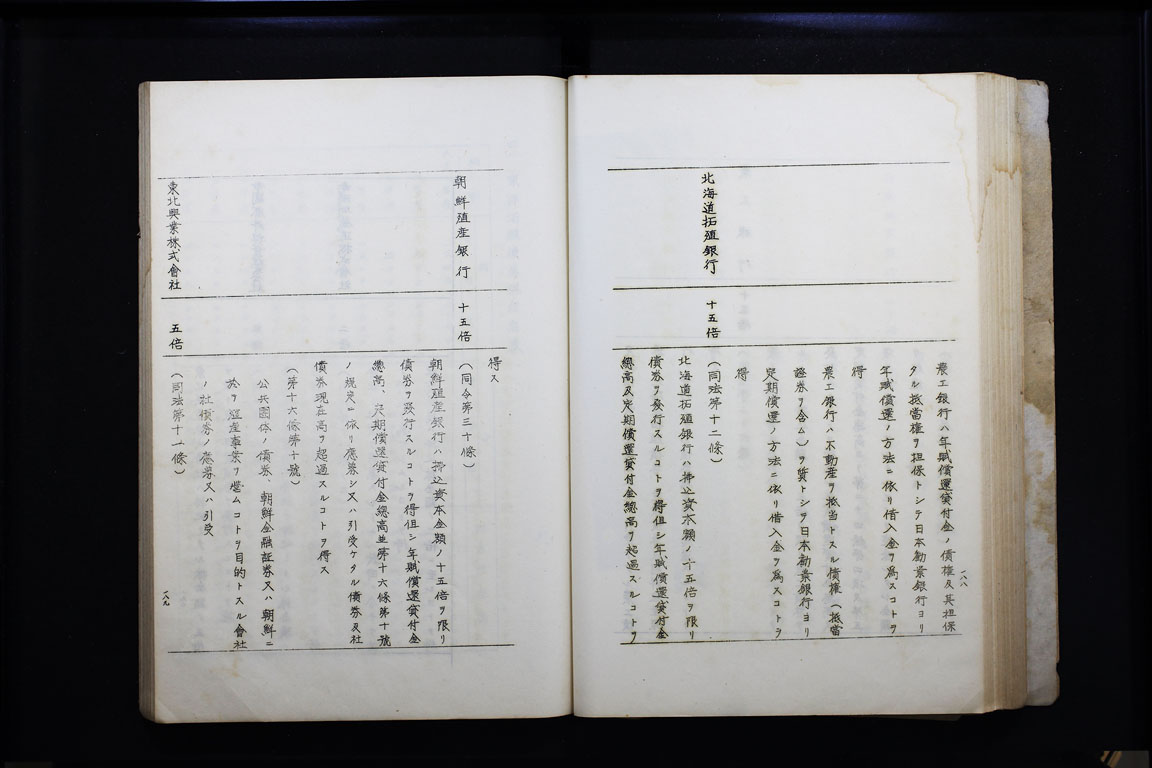 農工銀行ハ年賦償還貸付金ノ債權及其担保
タル抵當權ヲ担保トシテ日本勧業銀行ヨリ
年賦償還ノ方法ニ依リ借入金ヲ為スコトヲ
得
農工銀行ハ不動産ヲ抵当トスル債權(抵當
證券ヲ含ム)ヲ質トシテ日本勧業銀行ヨリ
定期償還ノ方法ニ依リ借入金ヲ為スコトヲ
得
北海道拓殖銀行
十五倍
(同法第十二條)
北海道拓殖銀行ハ拂込資本額ノ十五倍ヲ限リ
債券ヲ發行スルコトヲ得但シ年賦償還貸付金
總高及定期償還貸付金總高ヲ超過スルコトヲ
一八八
得ス
朝鮮殖産銀行
十五倍
(同令第三十條)
朝鮮殖産銀行ハ拂込資本金額ノ十五倍ヲ限リ
債券ヲ發行スルコトヲ得但シ年賦償還貸付金
總高、定期償還貸付金總高並第十六條第十號
ノ規定ニ依リ應募シ又ハ引受ケタル債券及社
債券現在高ヲ超過スルコトヲ得ス
(第十六條第十號)
公共團体ノ債券、朝鮮金融証券又ハ朝鮮ニ
於テ殖産事業ヲ營ムコトヲ目的トスル會社
ノ社債券ノ應募又ハ引受
東北興業株式會社
五倍
(同法第十一條)
一八九